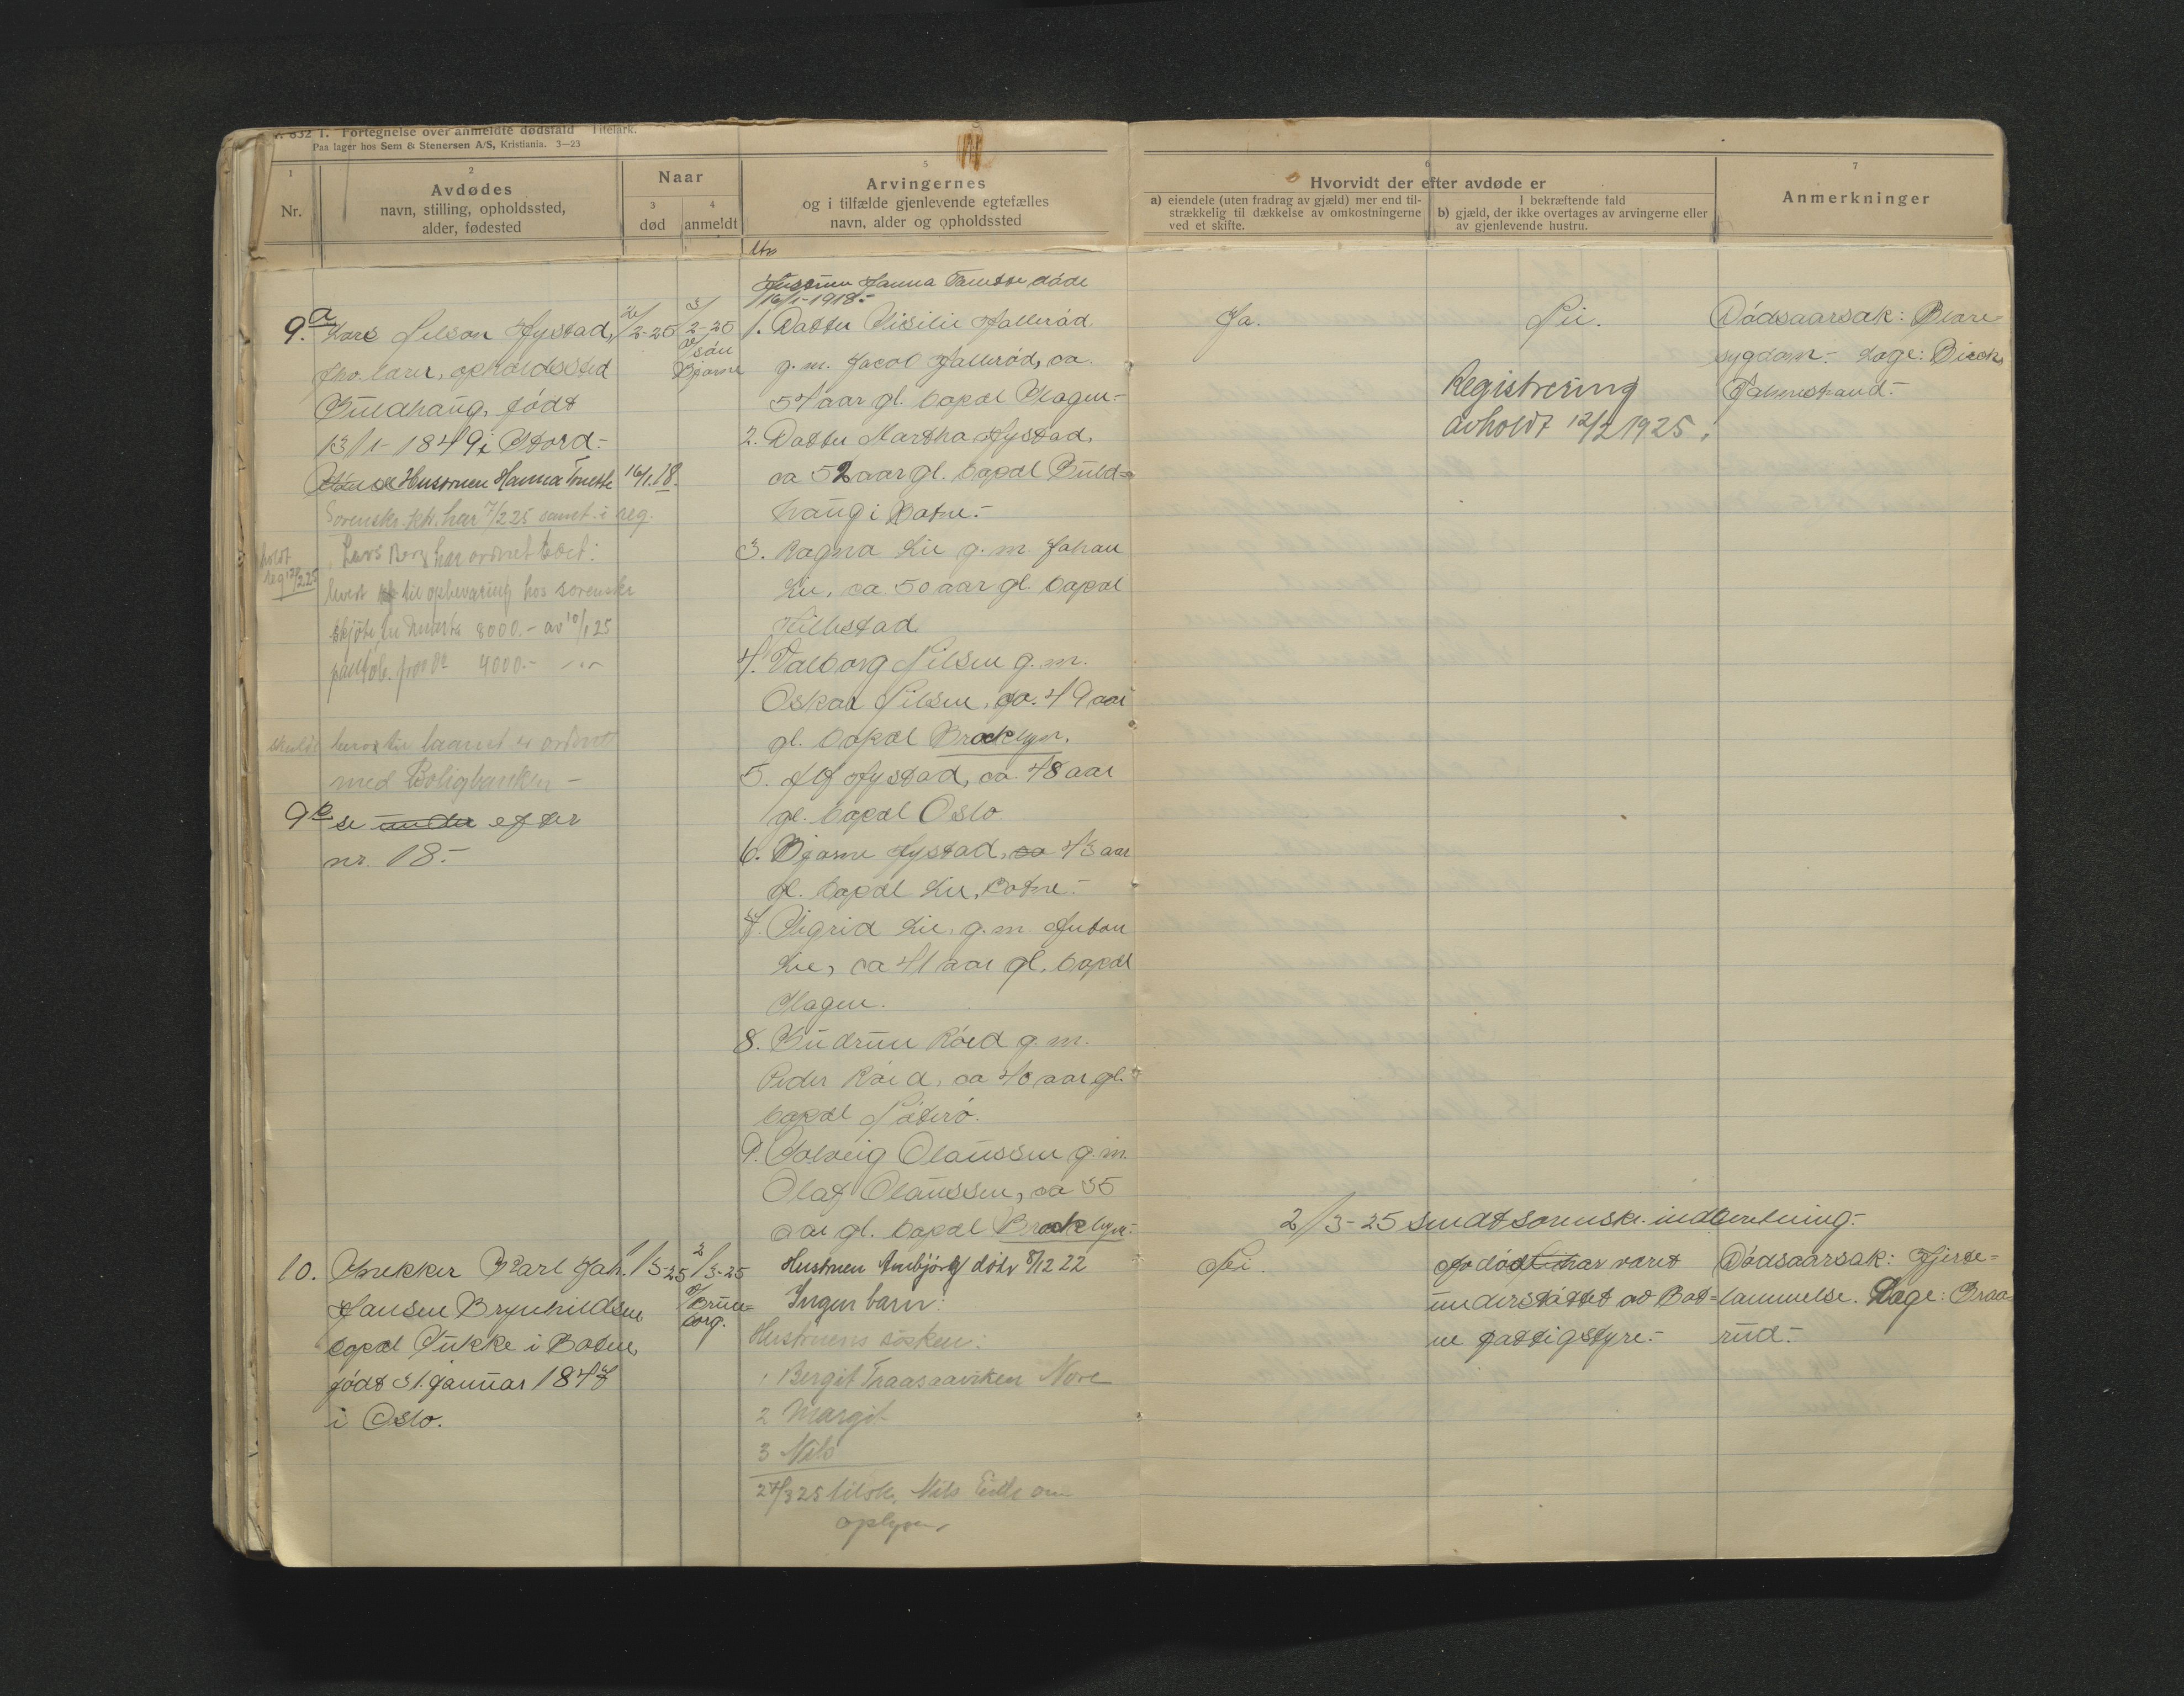 832 1. Fortegnelse over anmeldte dødsfald Titelark.
Paa lager hos Sem & Stenersen A/S, Kristiania. 3—23
1
Nr.
2
Avdødes
navn, stilling, opholdssted,
alder, fødested
Naar
3
død
4
anmeldt
5
Arvingernes
og i tilfælde gjenlevende egtefælles
navn, alder og opholdssted
6
Hvorvidt der efter avdøde er
a) eiendele (uten fradrag av gjæld) mer end til-
strækkelig til dækkelse av omkostningerne
ved et skifte.
I bekræftende fald
b) gjæld, der ikke overtages av arvingerne eller
av gjenlevende hustru.
7
Anmerkninger
9.a Lars Nilson Hystad,
fhv. lærer, opholdssted
Buldhaug, født
13/1-1849 i Stord.-
Hustruen Hanna Tomette 16/1.18.
Sorenskr. har 7/2 25 samt. i reg.
holdt
reg 12/2 25
Lars Berg har ordnet boet:
levert til opbevaring hos sorenskr
skjøte 8000.- av 10/1 25
pantob. 4000.-
laanet er ordnet
med Boligbanken -
9b se under efter
nr. 18.-
2/2-25
3/2-25
v/søn
Bjarne
Hustruen Hanna Tomette døde
16/1-1918.-
1. Datter Sisilie Jallerød
g.m. Jacob Jallerød, ca.
54 aar gl. bopæl Slagen-
2. Datter Martha Hystad,
ca 52 aar gl. bopæl Buld=
haug i Botne.-
3. Ragna Lie g.m. Johan
Lie, ca 50 aar gl. bopæl
Hillestad
4. Valborg Nilsen g.m.
Oskar Nilsen, ca. 49 aar
gl. bopæl Brooklyn.
5. Alf Hystad, ca 48 aar
gl. bopæl Oslo.
6. Bjarne Hystad, ca 43 aar
gl. bopæl Lie, Botne.-
7. Sigrid Lie, g.m. Anton
Lie, ca 41 aar gl. bopæl
Slagen.
8. Gudrun Røed g.m.
Peder Røed, ca 40 aar gl.
bopæl Nøterø.
9. Solveig Olaussen g.m.
Olaf Olaussen, ca 35
aar gl. bopæl Brooklyn.-
Ja.
Nei.
Registrering
avholdt 12/2 1925.
Dødsaarsak: Blære-
sygdom.- Læge:
Holmestrand.-
2/3-25 sendt sorenskr. indberetning.-
10. Snekker Karl Joh.
Hansen Brynhildsen
bopæl Sukke i Botne,
født 31. januar 1847
i Oslo.
1/3-25
2/3-25
v/
Brune=
borg.
Hustruen Anbjørg døde 8/12 22
Ingen barn:
Hustruens søsken:
1 Bergit Traasaaviken Nore
2 Margit
3 Nils
27/3 25 tilsk. Nils Eidte om
oplysn.
Nei.
Avdøde har været
understøttet av Bot=
ne fattigstyre.-
Dødsaarsak: Hjerte=
lammelse. Læge: Graa
rud.-